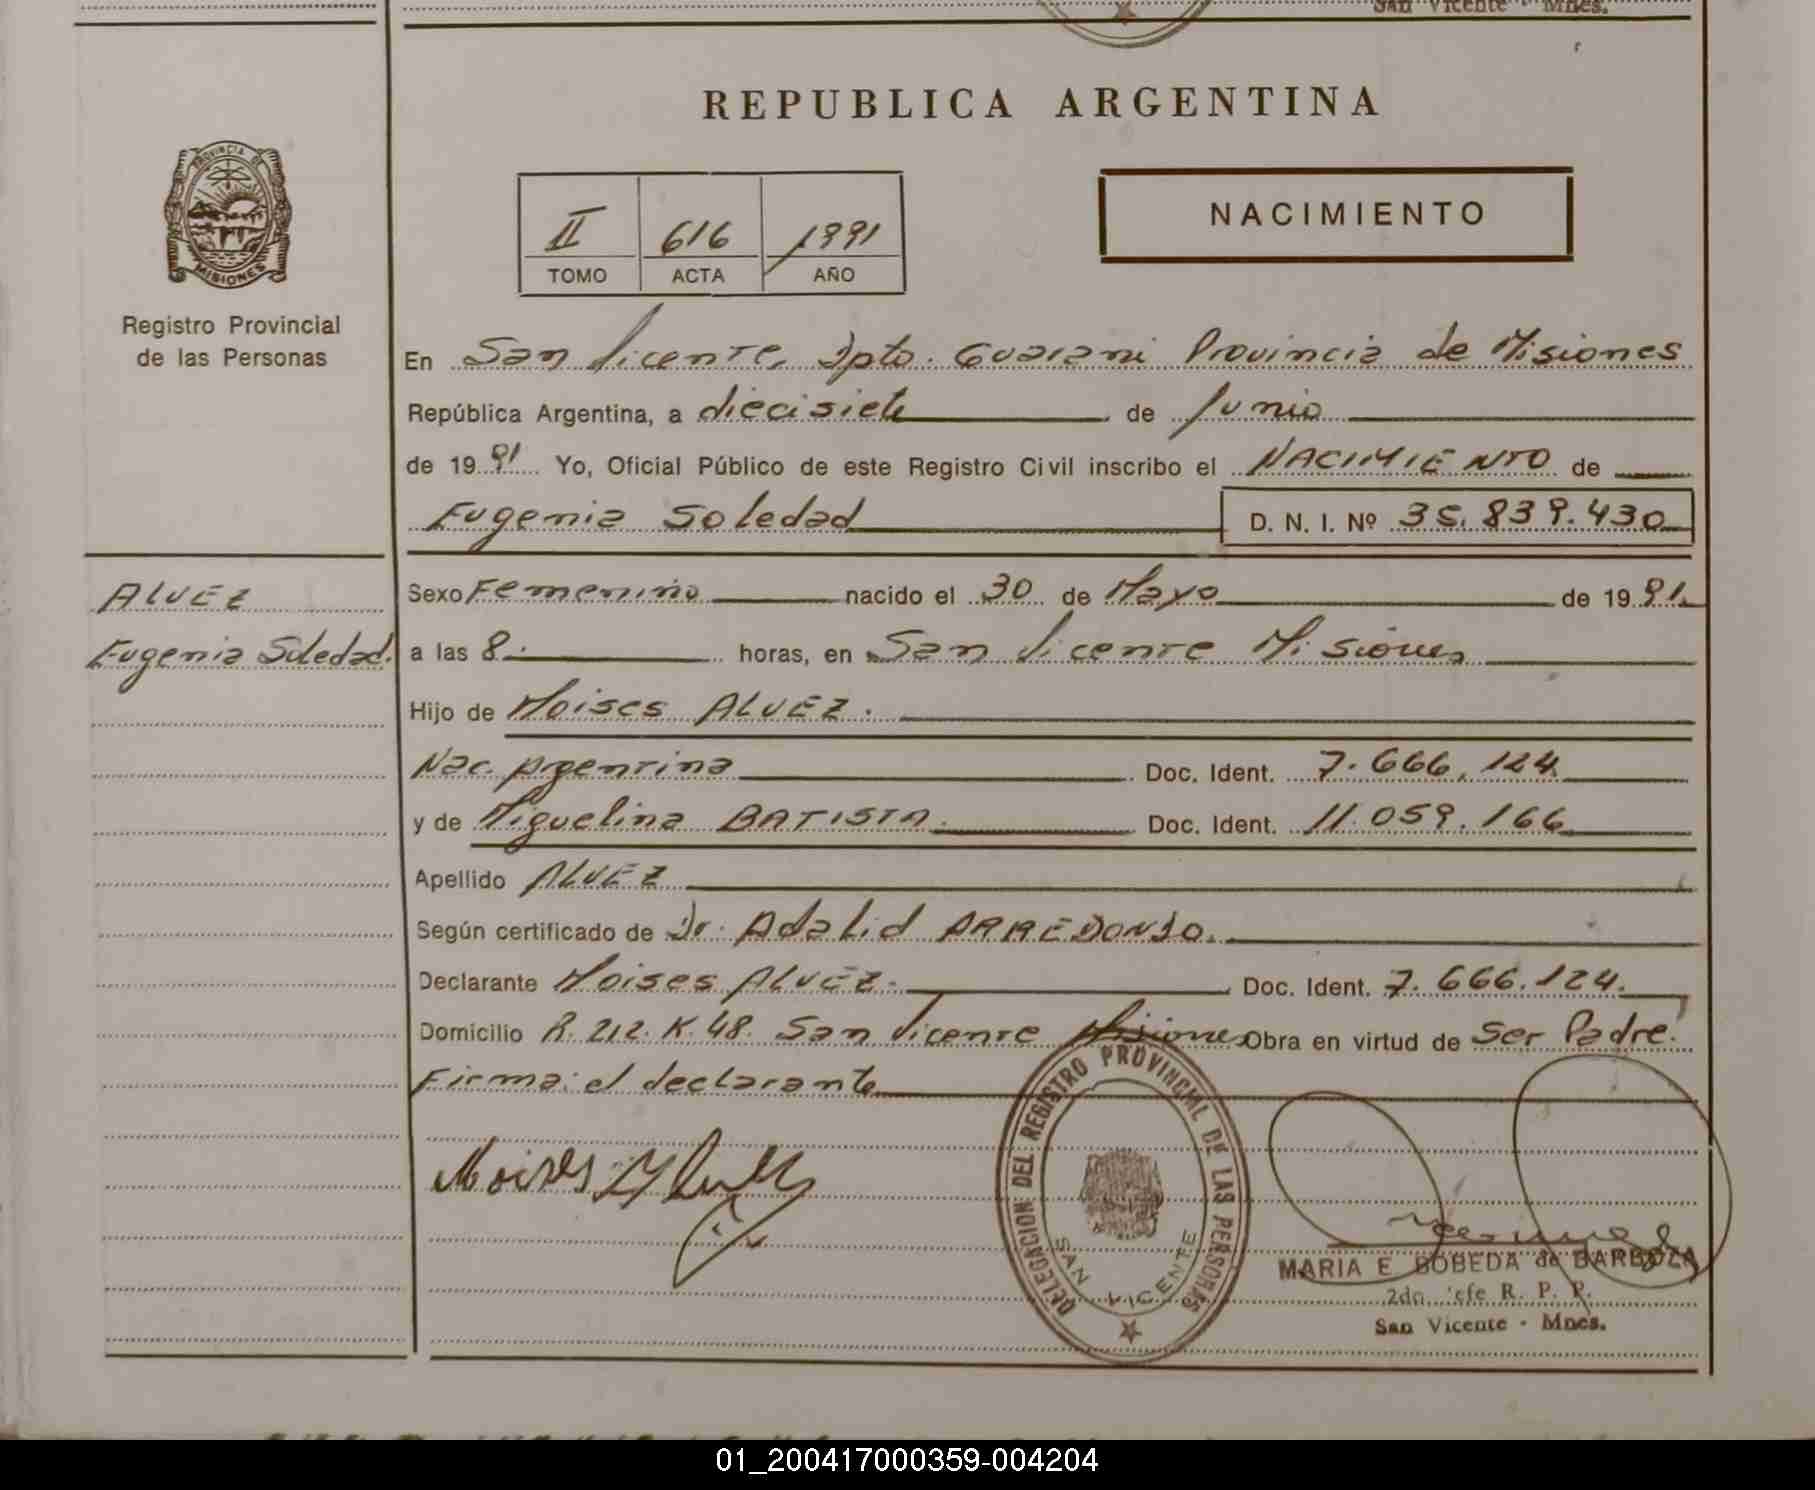 San Vicente - Mnes.
REPUBLICA ARGENTINA
PROVINCIA DE
MISIONES
Registro Provincial
de las Personas
II 616 1991
TOMO ACTA AÑO
NACIMIENTO
En San Vicente, Dpto. Guarani Provincia de Misiones
República Argentina, a diecisiete de Junio
de 1991 Yo, Oficial Público de este Registro Civil inscribo el NACIMIENTO de
Eugenia Soledad D. N. I. Nº 35.839.430
ALVEZ
Eugenia Soledad.
Sexo Femenino nacido el 30 de Mayo de 1991.
a las 8. horas, en San Vicente Misiones
Hijo de Moises ALVEZ.
Nac. Argentina Doc. Ident. 7.666.124
y de Miguelina BATISTA. Doc. Ident. 11.059.166
Apellido ALVEZ
Según certificado de Dr. Adalid ARREDONDO.
Declarante Moises ALVEZ. Doc. Ident. 7.666.124.
Domicilio R. 212. K. 48. San Vicente Misiones Obra en virtud de Ser Padre.
Firma: el declarante
Moises
DELEGACION DEL REGISTRO PROVINCIAL DE LAS PERSONAS
SAN VICENTE
MARIA E BOBEDA de BARBOZA
2do. Jefe R. P. P.
San Vicente - Mnes.
01_200417000359-004204